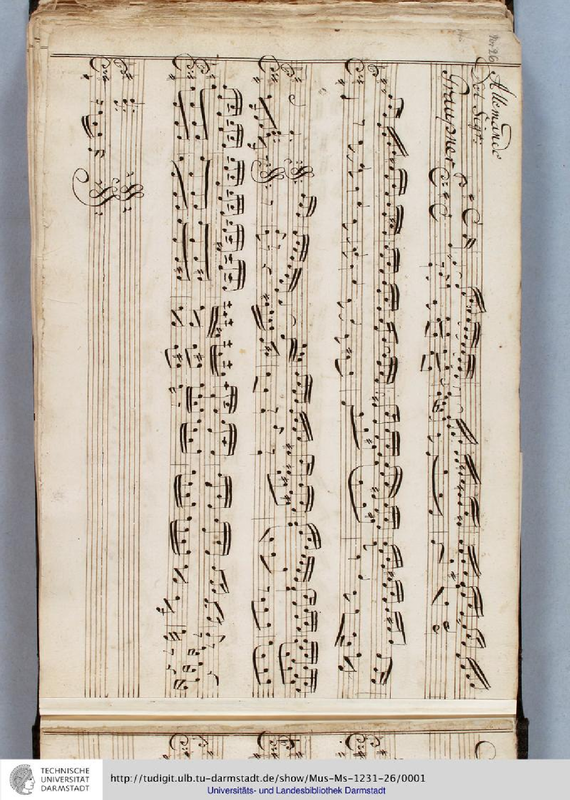 No 26
Allemande
del Sigr:
Graupner
TECHNISCHE
UNIVERSITÄT
DARMSTADT
http://tudigit.ulb.tu-darmstadt.de/show/Mus-Ms-1231-26/0001
Universitäts- und Landesbibliothek Darmstadt